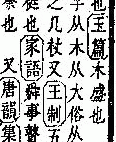 也玉篇木處也
子从木从大俗从
之几杖又王制五
莚也家語舜事瞽
㷊也 又唐韻集